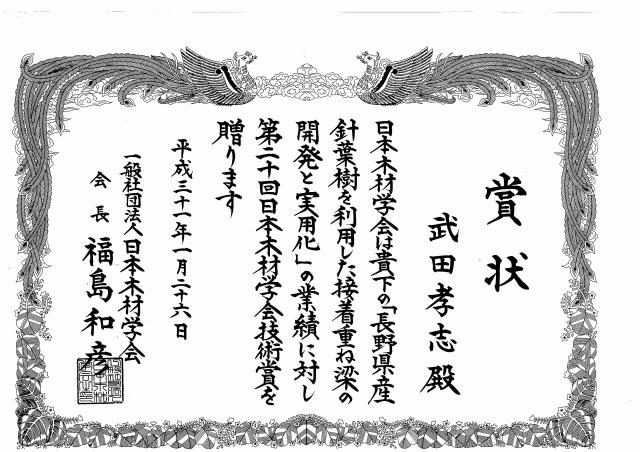 賞状
武田孝志殿
日本木材学会は貴下の「長野県産
針葉樹を利用した接着重ね梁の
開発と実用化」の業績に対し
第二十回日本木材学会技術賞を
贈ります
平成三十一年一月二十六日
一般社団法人日本木材学会
会長 福島和彦